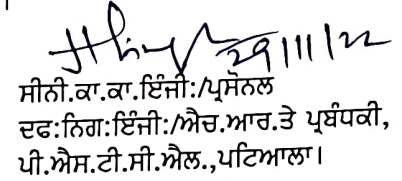 29/11/22
ਸੀਨੀ.ਕਾ.ਕਾ.ਇੰਜੀ:/ਪ੍ਰਸੋਨਲ
ਦਫ:ਨਿਗ:ਇੰਜੀ:/ਐਚ.ਆਰ.ਤੇ ਪ੍ਰਬੰਧਕੀ,
ਪੀ.ਐਸ.ਟੀ.ਸੀ.ਐਲ.,ਪਟਿਆਲਾ।